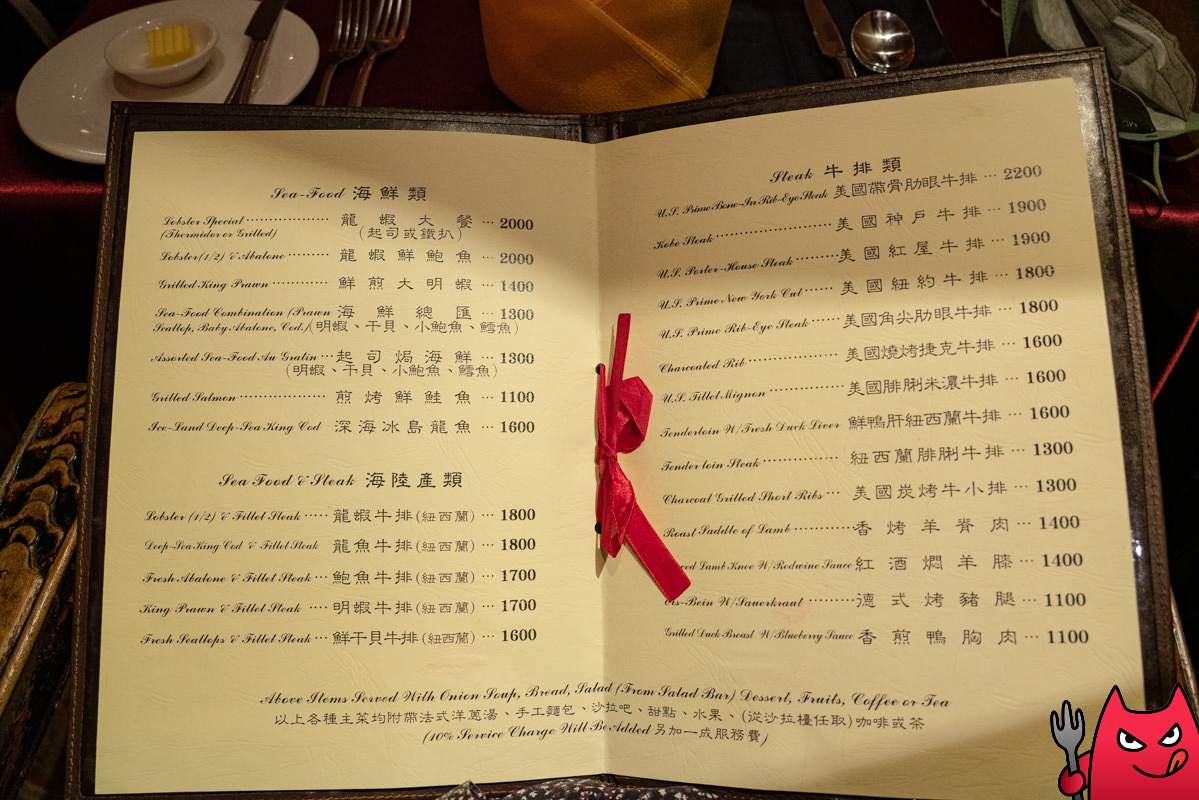 Sea-Food 海鮮類
Lobster Special ·················· 龍蝦大餐 ··· 2000
(Thermidor or Grilled) (起司或鐵扒)
Lobster (1/2) & Abalone ········· 龍蝦鮮鮑魚 ··· 2000
Grilled King Prawn ············ 鮮煎大明蝦 ··· 1400
Sea-Food Combination (Prawn 海鮮總匯 ··· 1300
Scallop, Baby Abalone, Cod.) (明蝦、干貝、小鮑魚、鱈魚)
Assorted Sea-Food Au Gratin ··· 起司焗海鮮 ··· 1300
(明蝦、干貝、小鮑魚、鱈魚)
Grilled Salmon ·················· 煎烤鮮鮭魚 ··· 1100
Ice-Land Deep-Sea King Cod 深海冰島龍魚 ··· 1600
Sea Food & Steak 海陸產類
Lobster (1/2) & Fillet Steak ····· 龍蝦牛排(紐西蘭) ··· 1800
Deep-Sea King Cod & Fillet Steak 龍魚牛排(紐西蘭) ··· 1800
Fresh Abalone & Fillet Steak ··· 鮑魚牛排(紐西蘭) ··· 1700
King Prawn & Fillet Steak ···· 明蝦牛排(紐西蘭) ··· 1700
Fresh Scallops & Fillet Steak ··· 鮮干貝牛排(紐西蘭) ··· 1600
Steak 牛排類
U.S. Prime Bone-In Rib-Eye Steak 美國帶骨肋眼牛排 ··· 2200
Kobe Steak ························ 美國神戶牛排 ··· 1900
U.S. Porter-House Steak ········· 美國紅屋牛排 ··· 1900
U.S. Prime New York Cut ······ 美國紐約牛排 ··· 1800
U.S. Prime Rib-Eye Steak ······ 美國角尖肋眼牛排 ··· 1800
Charcoaled Rib ·················· 美國燒烤捷克牛排 ··· 1600
U.S. Fillet Mignon ··············· 美國腓脷米濃牛排 ··· 1600
Tenderloin W/Fresh Duck Liver 鮮鴨肝紐西蘭牛排 ··· 1600
Tender loin Steak ··············· 紐西蘭腓脷牛排 ··· 1300
Charcoal Grilled Short Ribs ··· 美國炭烤牛小排 ··· 1300
Roast Saddle of Lamb ············ 香烤羊脊肉 ··· 1400
Lamb Knee W/Redwine Sauce 紅酒燜羊膝 ··· 1400
Eis-Bein W/Sauerkraut ········· 德式烤豬腿 ··· 1100
Grilled Duck Breast W/Blueberry Sauce 香煎鴨胸肉 ··· 1100
Above Items Served With Onion Soup, Bread, Salad (From Salad Bar) Dessert, Fruits, Coffee or Tea
以上各種主菜均附帶法式洋蔥湯、手工麵包、沙拉吧、甜點、水果、(從沙拉檯任取)咖啡或茶
(10% Service Charge Will Be Added 另加一成服務費)